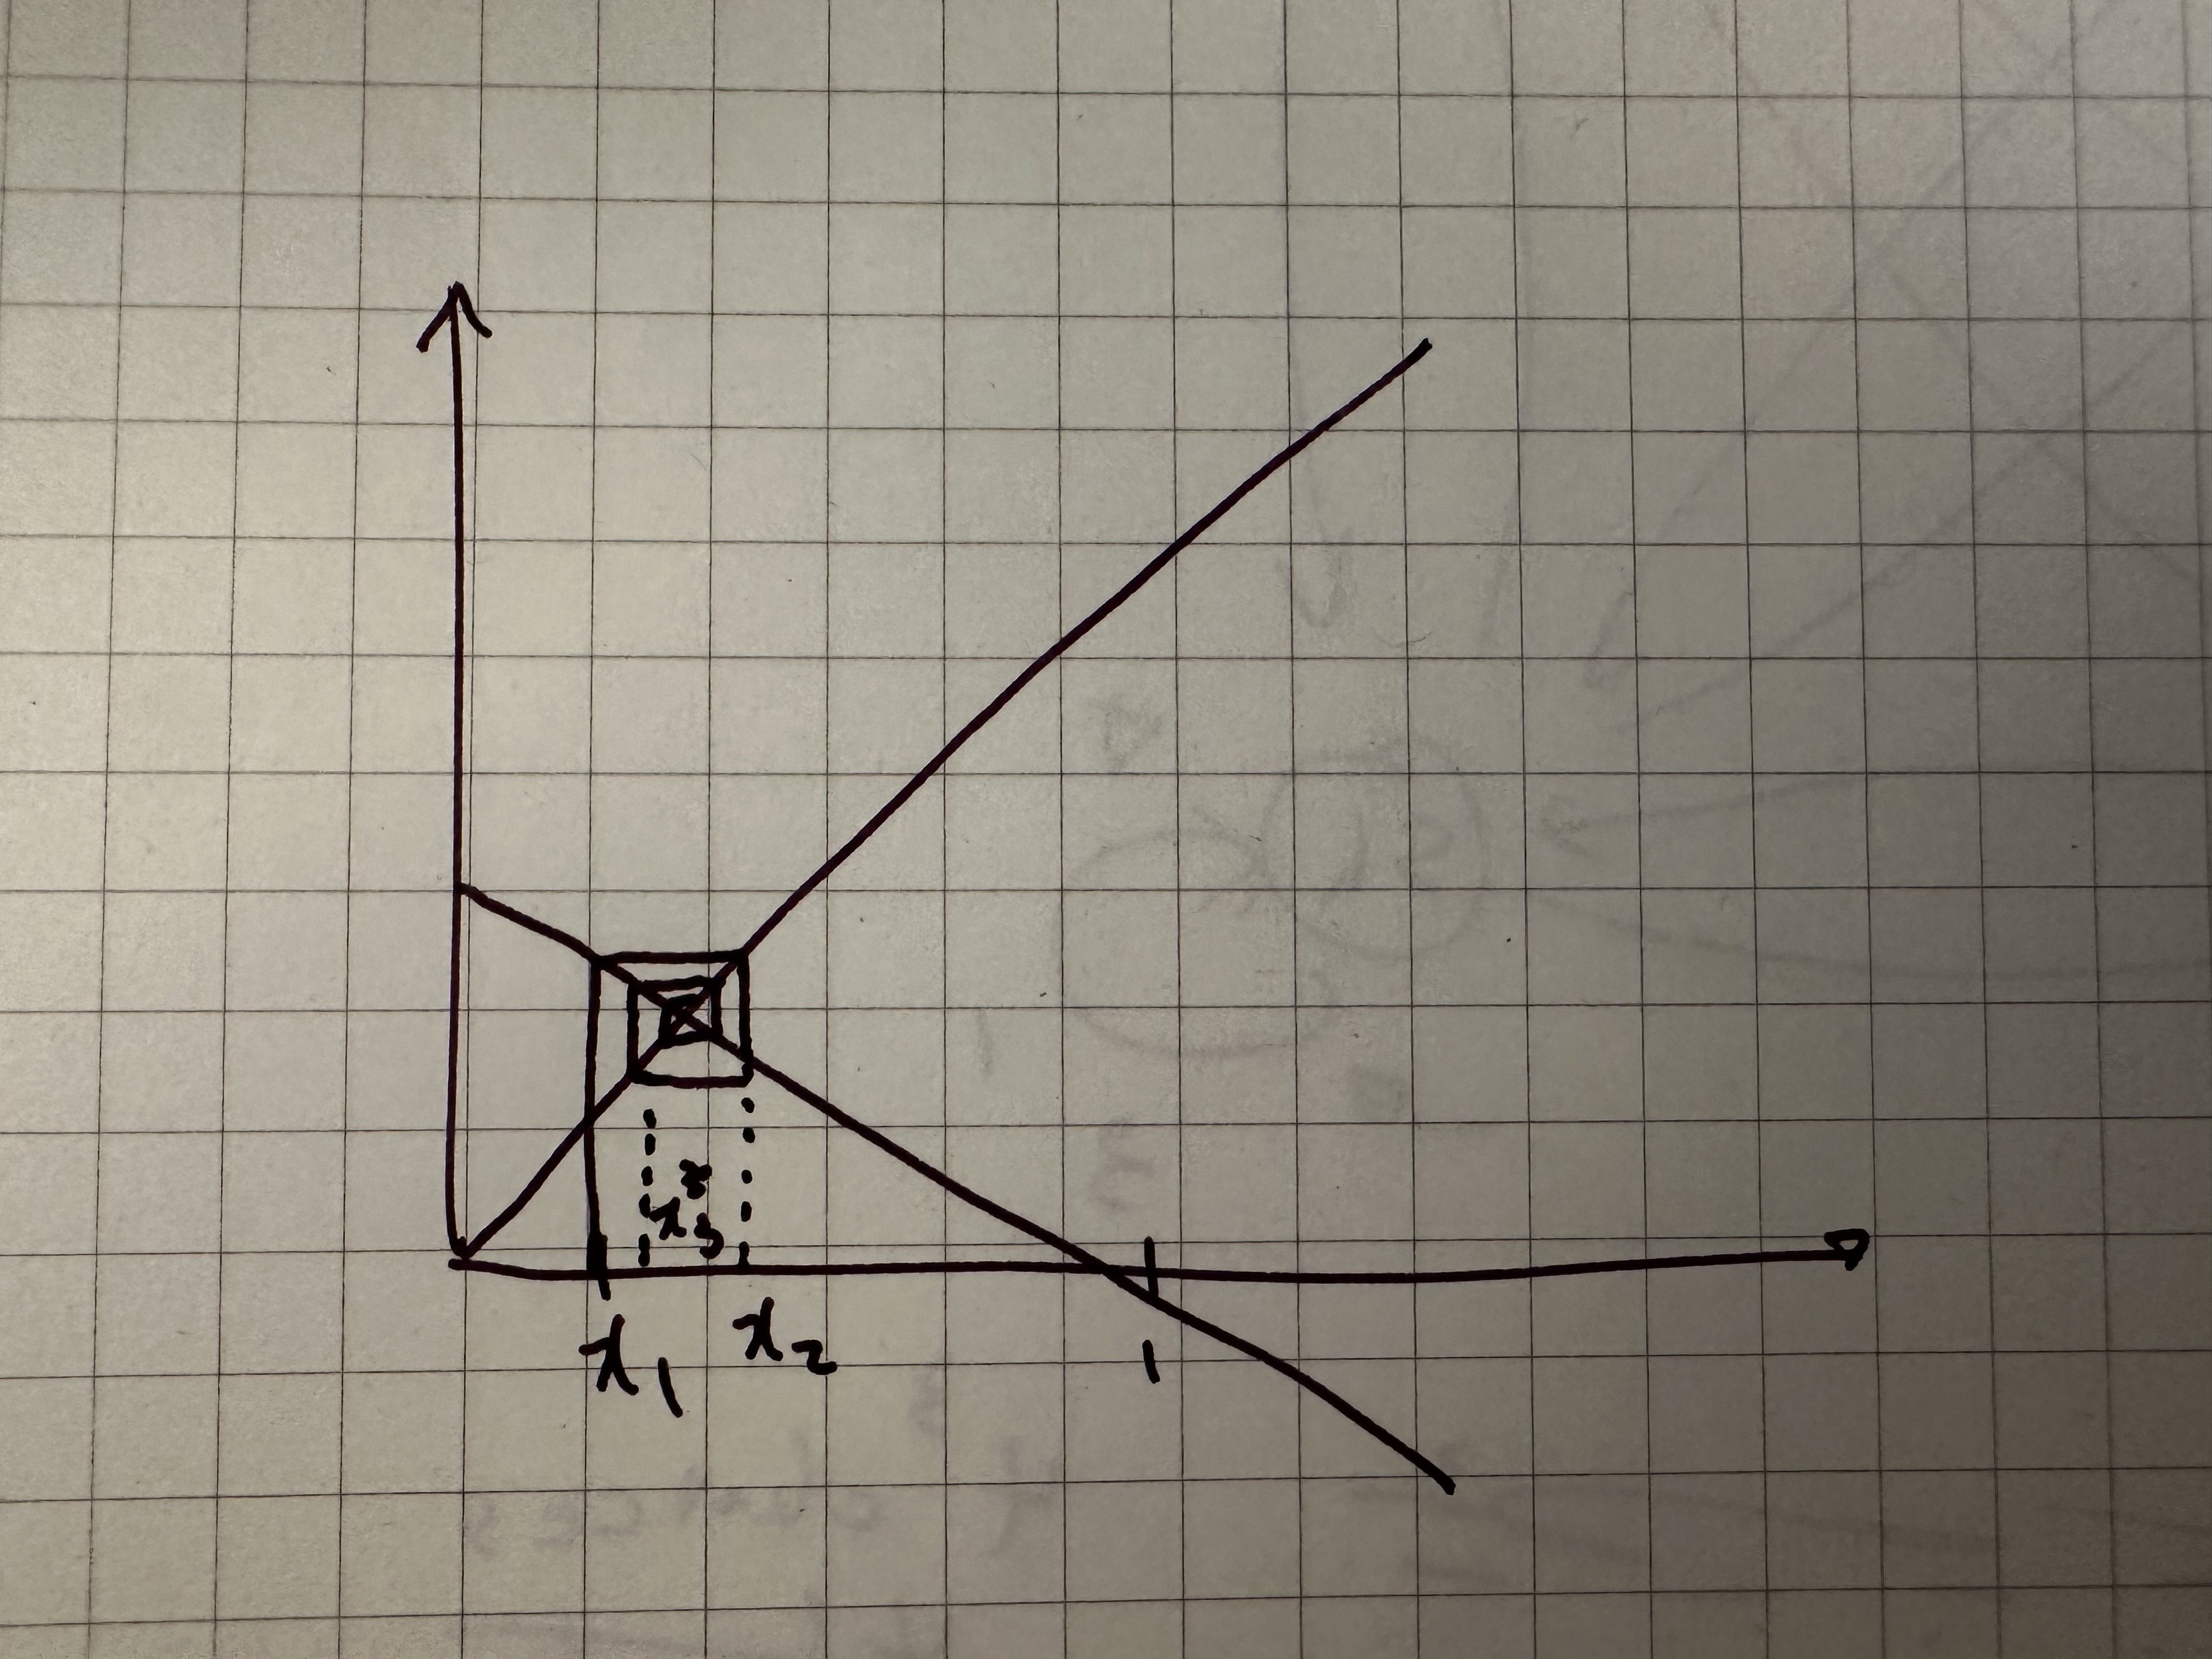 x₃
x₁ x₂ 1